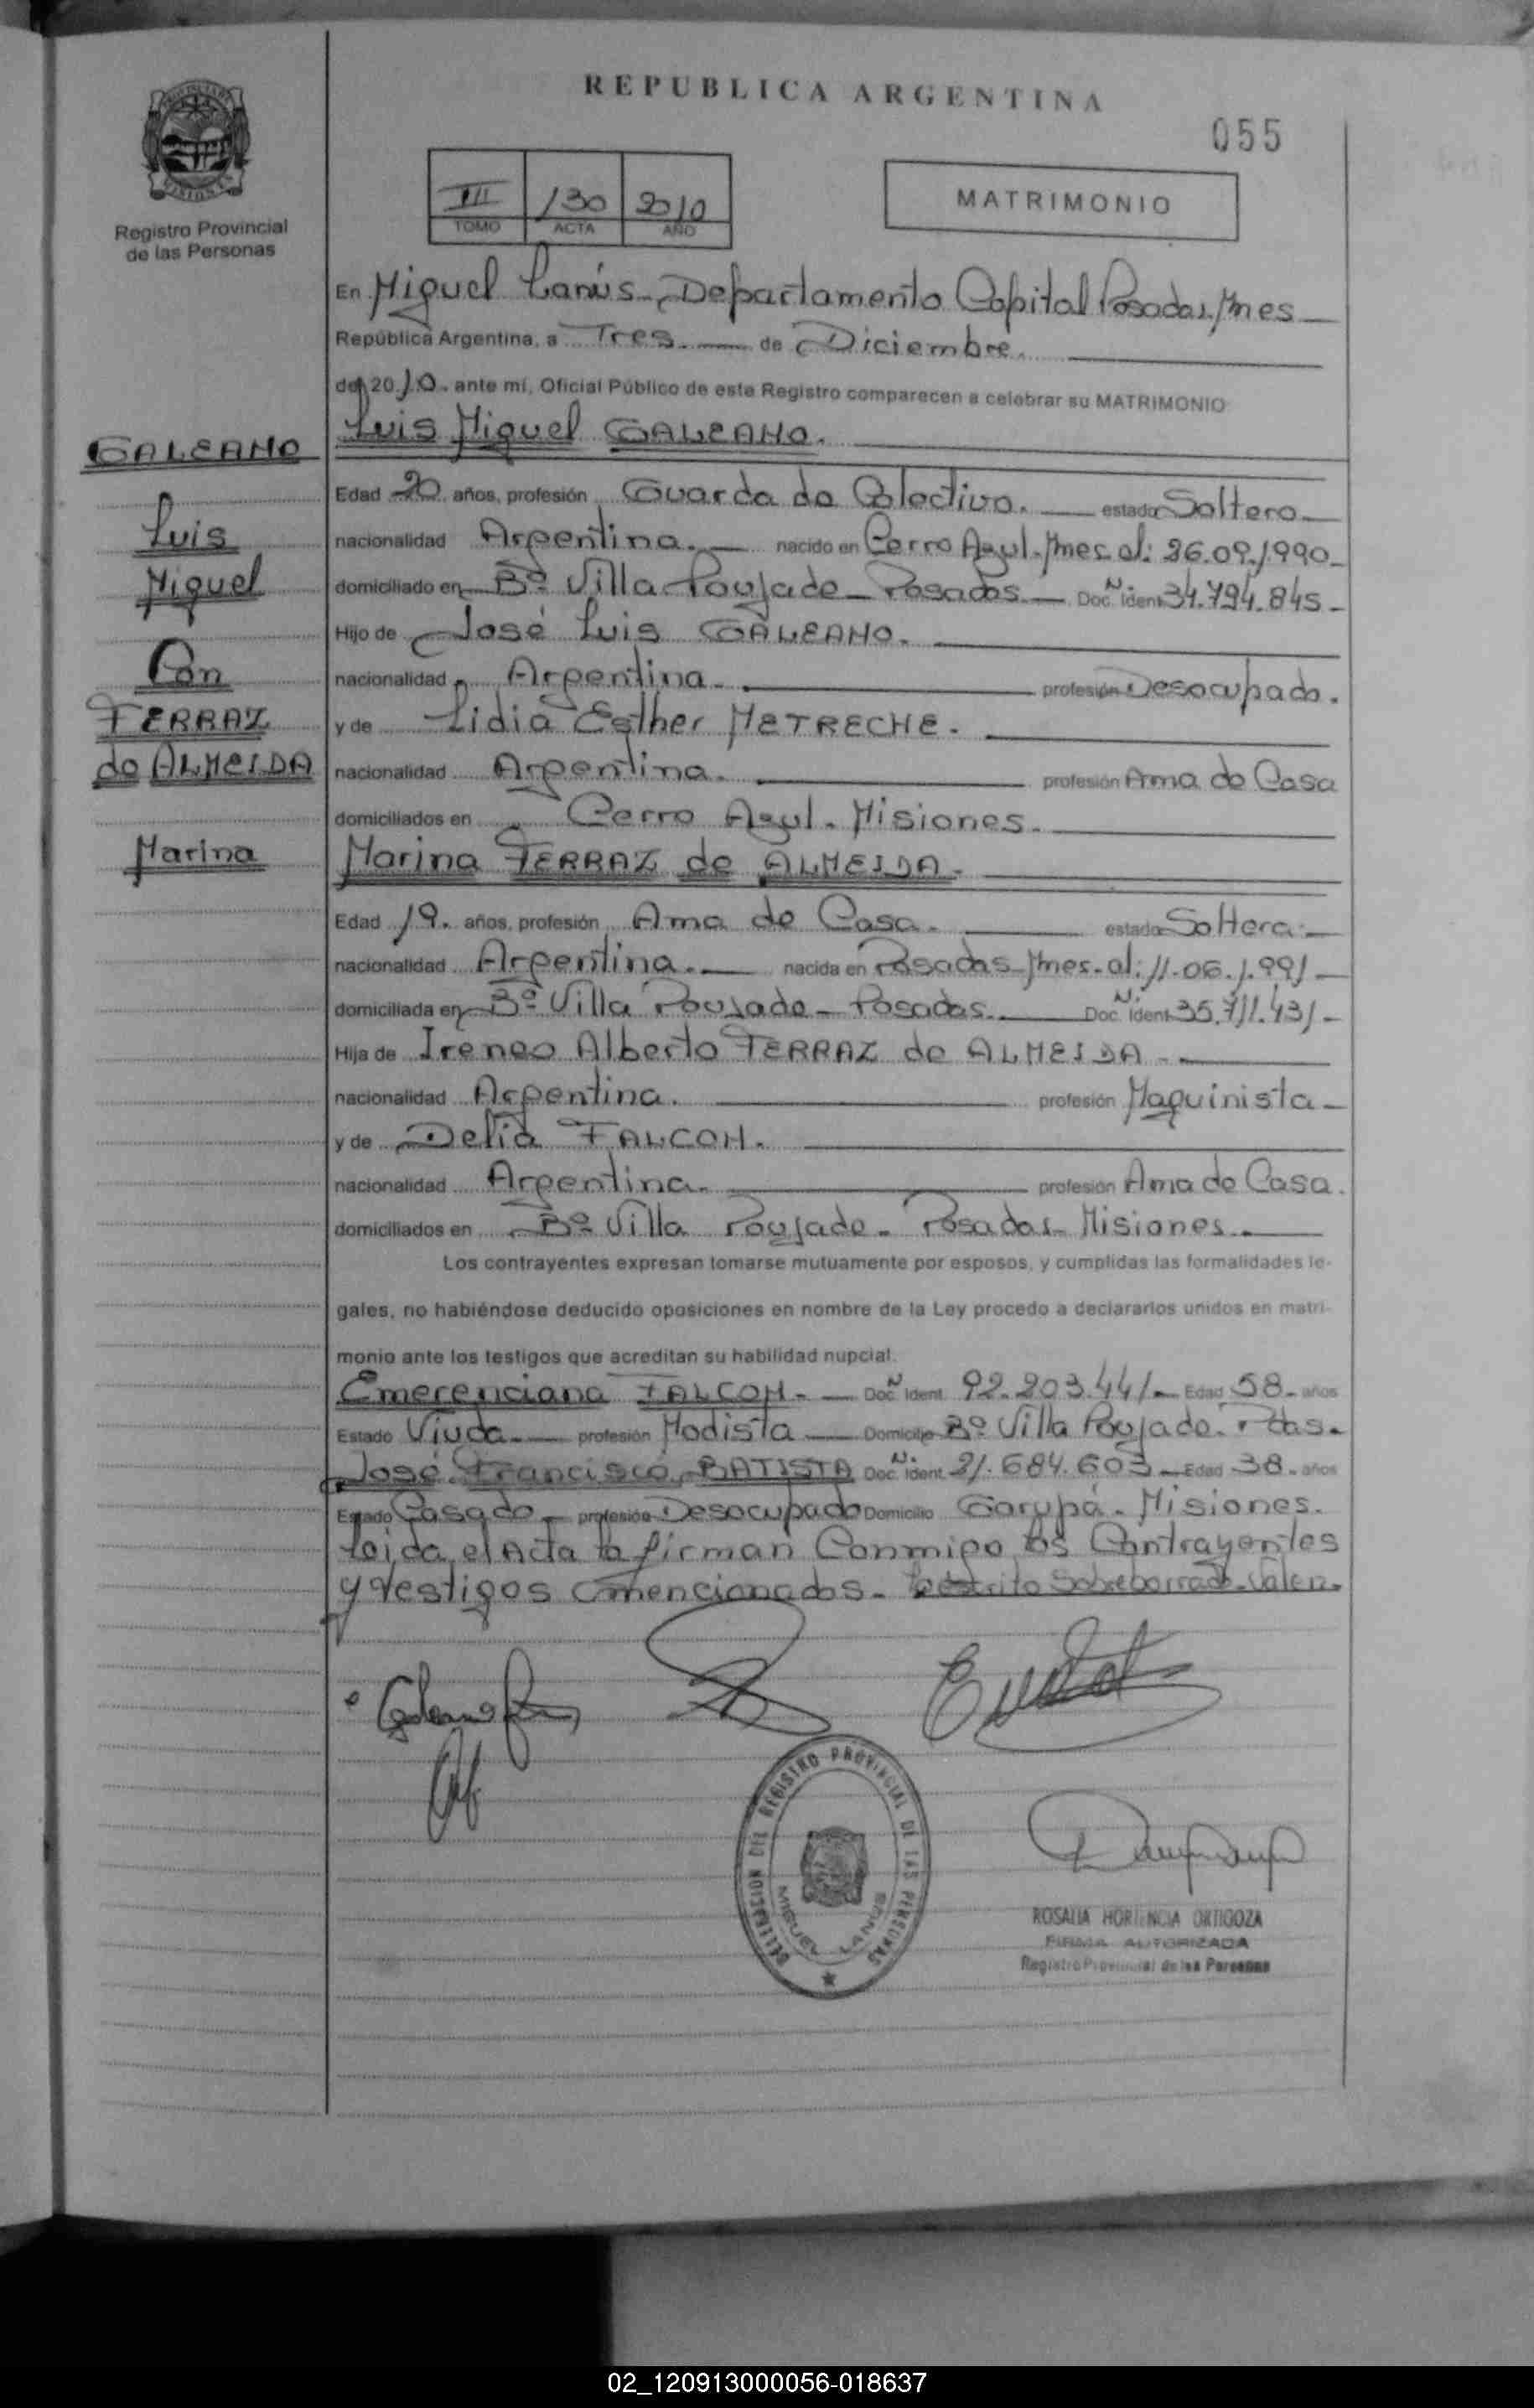 REPUBLICA ARGENTINA
055
III 130 2010
TOMO ACTA AÑO
MATRIMONIO
Registro Provincial
de las Personas
En Miguel Lanús - Departamento Capital Posadas, Mnes
República Argentina, a Tres. de Diciembre.
del 2010. ante mí, Oficial Público de este Registro comparecen a celebrar su MATRIMONIO
Luis Miguel GALEANO.
GALEANO
Luis
Miguel
Con
FERRAZ
de ALMEIDA
Marina
Edad 20 años, profesión Guarda de Colectivo. estado Soltero
nacionalidad Argentina. nacido en Cerro Azul. Mnes. el: 26.09.1990
domiciliado en Bº Villa Poujade - Posadas Doc. Nº ident 34.794.845-
Hijo de José Luis GALEANO.
nacionalidad Argentina profesión Desocupado.
y de Lidia Esther METRECHE.
nacionalidad Argentina. profesión Ama de Casa
domiciliados en Cerro Azul. Misiones.
Marina FERRAZ de ALMEIDA.
Edad 19. años, profesión Ama de Casa. estado Soltera
nacionalidad Argentina. nacida en Posadas - Mnes. el: 11.06.1.991
domiciliada en Bº Villa Poujade - Posadas. Doc. Nº ident 35.711.431-
Hija de Ireneo Alberto FERRAZ de ALMEIDA
nacionalidad Argentina. profesión Maquinista
y de Delia FALCON.
nacionalidad Argentina. profesión Ama de Casa.
domiciliados en Bº Villa Poujade - Posadas Misiones.
Los contrayentes expresan tomarse mutuamente por esposos, y cumplidas las formalidades le-
gales, no habiéndose deducido oposiciones en nombre de la Ley procedo a declararlos unidos en matri-
monio ante los testigos que acreditan su habilidad nupcial.
Emerenciana FALCON. Doc. Nº Ident. 92.203.441 Edad 58 años
Estado Viuda profesión Modista Domicilio Bº Villa Poujade. Pdas.
José Francisco BATISTA Doc. Nº Ident. 21.684.603 Edad 38 años
Estado Casado profesión Desocupado Domicilio Garupá - Misiones.
Leida el Acta la firman Conmigo los Contrayentes
y Testigos mencionados. Lo escrito Sobreborrado. Valen.
DELEGACION DEL REGISTRO PROVINCIAL DE LAS PERSONAS
MIGUEL LANUS
ROSALIA HORTENCIA ORTIGOZA
FIRMA AUTORIZADA
Registro Provincial de las Personas
02_120913000056-018637